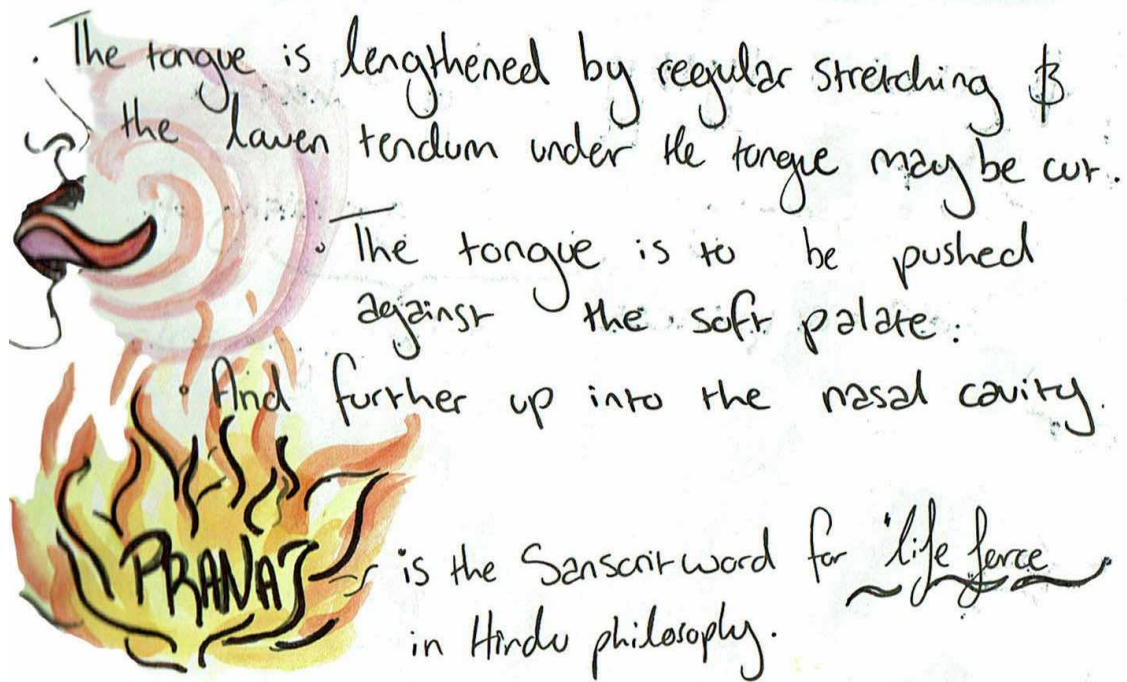 . The tongue is lengthened by regular stretching &
the lawen tendum under the tongue may be cut.
• The tongue is to be pushed
against the soft palate.
• And further up into the nasal cavity.
PRANA is the Sanscrit word for 'life force
in Hindu philosophy.